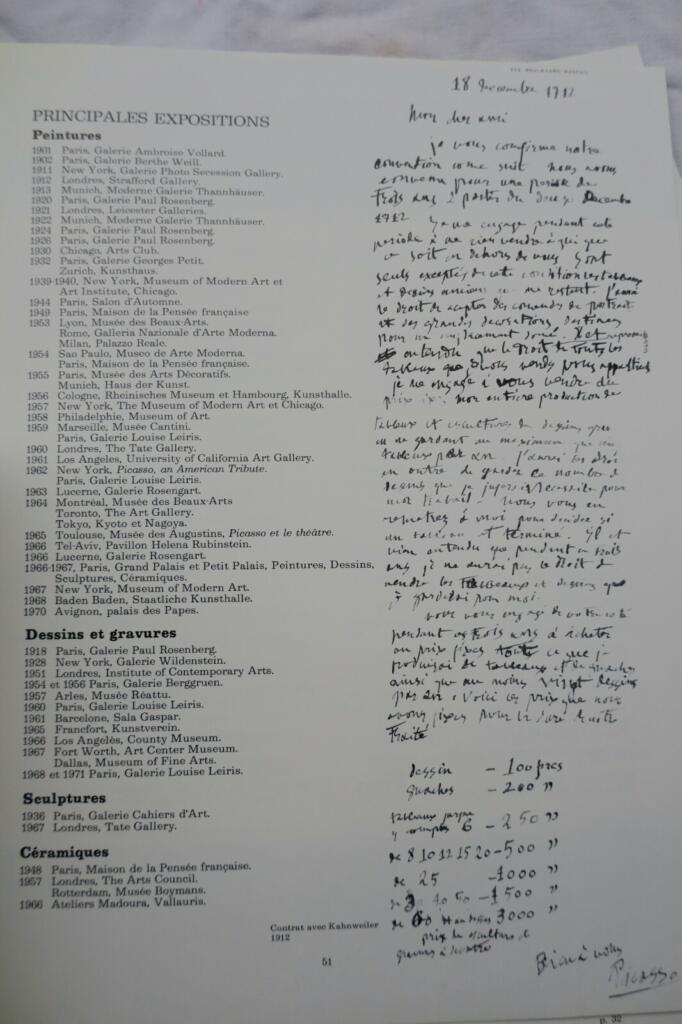 PRINCIPALES EXPOSITIONS
Peintures
1901 Paris, Galerie Ambroise Vollard.
1902 Paris, Galerie Berthe Weill.
1911 New York, Galerie Photo Secession Gallery.
1912 Londres, Strafford Gallery.
1913 Munich, Moderne Galerie Thannhäuser.
1920 Paris, Galerie Paul Rosenberg.
1921 Londres, Leicester Galleries.
1922 Munich, Moderne Galerie Thannhäuser.
1924 Paris, Galerie Paul Rosenberg.
1926 Paris, Galerie Paul Rosenberg.
1930 Chicago, Arts Club.
1932 Paris, Galerie Georges Petit.
Zurich, Kunsthaus.
1939-1940, New York, Museum of Modern Art et
Art Institute, Chicago.
1944 Paris, Salon d'Automne.
1949 Paris, Maison de la Pensée française
1953 Lyon, Musée des Beaux-Arts.
Rome, Galleria Nazionale d'Arte Moderna.
Milan, Palazzo Reale.
1954 Sao Paulo, Museo de Arte Moderna.
Paris, Maison de la Pensée française.
1955 Paris, Musée des Arts Décoratifs.
Munich, Haus der Kunst.
1956 Cologne, Rheinisches Museum et Hambourg, Kunsthalle.
1957 New York, The Museum of Modern Art et Chicago.
1958 Philadelphie, Museum of Art.
1959 Marseille, Musée Cantini.
Paris, Galerie Louise Leiris.
1960 Londres, The Tate Gallery.
1961 Los Angeles, University of California Art Gallery.
1962 New York, Picasso, an American Tribute.
Paris, Galerie Louise Leiris.
1963 Lucerne, Galerie Rosengart.
1964 Montréal, Musée des Beaux-Arts
Toronto, The Art Gallery.
Tokyo, Kyoto et Nagoya.
1965 Toulouse, Musée des Augustins, Picasso et le théâtre.
1966 Tel-Aviv, Pavillon Helena Rubinstein.
1966 Lucerne, Galerie Rosengart.
1966-1967, Paris, Grand Palais et Petit Palais, Peintures, Dessins,
Sculptures, Céramiques.
1967 New York, Museum of Modern Art.
1968 Baden Baden, Staatliche Kunsthalle.
1970 Avignon, palais des Papes.
Dessins et gravures
1918 Paris, Galerie Paul Rosenberg.
1928 New York, Galerie Wildenstein.
1951 Londres, Institute of Contemporary Arts.
1954 et 1956 Paris, Galerie Berggruen.
1957 Arles, Musée Réattu.
1960 Paris, Galerie Louise Leiris.
1961 Barcelone, Sala Gaspar.
1965 Francfort, Kunstverein.
1966 Los Angelès, County Museum.
1967 Fort Worth, Art Center Museum.
Dallas, Museum of Fine Arts.
1968 et 1971 Paris, Galerie Louise Leiris.
Sculptures
1936 Paris, Galerie Cahiers d'Art.
1967 Londres, Tate Gallery.
Céramiques
1948 Paris, Maison de la Pensée française.
1957 Londres, The Arts Council.
Rotterdam, Musée Boymans.
1966 Ateliers Madoura, Vallauris.
Contrat avec Kahnweiler
1912
51
18 Decembre 1912
Mon cher ami
je vous confirme notre
convention come suit nous avons
convenu pour une periode de
trois ans à partir du deux Decembre
1912. Je m'engage pendant cete
periode à ne rien vendre à qui que
ce soit en dehors de vous Sont
seuls exceptés de cete condition les tableaux
et dessins anciens qui me restent. J'aurai
le droit de acepter des comandes de portrait
et des grandes decorations destinees
pour un
entendu que le Droit de toutes les
tableaux que je vous vends vous appartient
je me engage à vous vendre au
prix mon entiere production de
tableaux et esculture dessins
en ne gardant au maximum que
tableaux par an J'aurai
en outre de garder ce nombre de
desins que je jugerai necessaire pour
mon travail. Nous vous en
remetrez à moi pour decider si
un tableau est terminé. Il est
bien entendu que pendant ces trois
ans je ne aurai pas le droit de
vendre les tableaux et dessins que
je garderai pour moi.
vous vous engagé de votre coté
pendant ces trois ans à acheter
au prix fixes toute ce que je
produirai de tableaux et de guaches
ainsi que au moins vingt dessins
par an. Voici les prix que nous
avons fixés pour la duré de notre
traité
dessin - 100 frcs
guaches - 200 "
tableaux jusque
y compris 6 - 250 "
de 8 10 12 15 20 - 500 "
de 25 - 1000 "
de 30 40 50 - 1500 "
de 60 et au dessus 3000 "
prix de esculture et
gravures à
Bien à vous
Picasso
p. 32